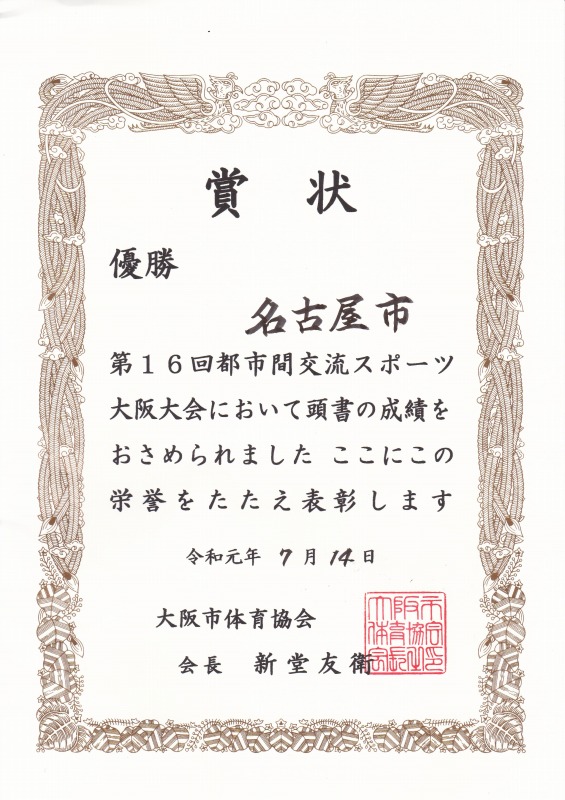 賞 状
優勝
名古屋市
第16回都市間交流スポーツ
大阪大会において頭書の成績を
おさめられました ここにこの
栄誉をたたえ表彰します
令和元年 7 月 14 日
大阪市体育協会
会長 新堂友衛